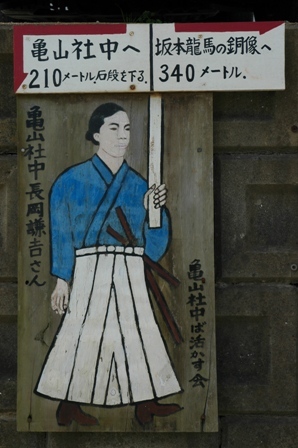 亀山社中へ
210メートル.石段を下る.
坂本龍馬の銅像へ
340メートル.
亀山社中長岡謙吉さん
亀山社中ば活かす会